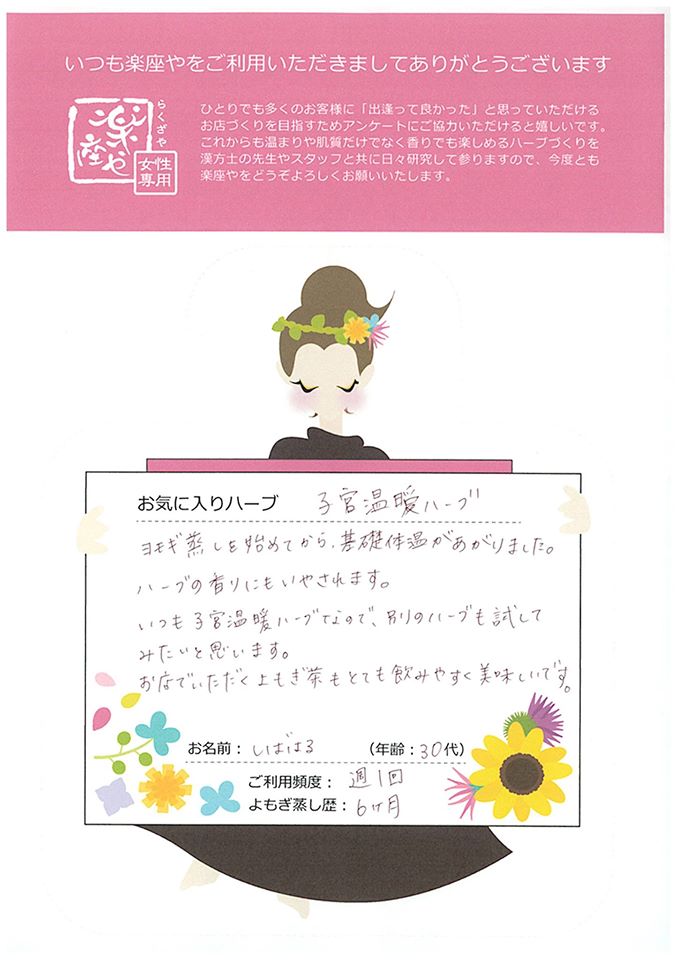 いつも楽座やをご利用いただきましてありがとうございます
らくざや
楽座や
女性専用
ひとりでも多くのお客様に「出逢って良かった」と思っていただける
お店づくりを目指すためアンケートにご協力いただけると嬉しいです。
これからも温まりや肌質だけでなく香りでも楽しめるハーブづくりを
漢方士の先生やスタッフと共に日々研究して参りますので、今度とも
楽座やをどうぞよろしくお願いいたします。
お気に入りハーブ 子宮温暖ハーブ
ヨモギ蒸しを始めてから、基礎体温があがりました。
ハーブの香りにもいやされます。
いつも子宮温暖ハーブなので、別のハーブも試して
みたいと思います。
お店でいただくよもぎ茶もとても飲みやすく美味しいです。
お名前：しばはる （年齢：30代）
ご利用頻度： 週1回
よもぎ蒸し歴： 6ヶ月